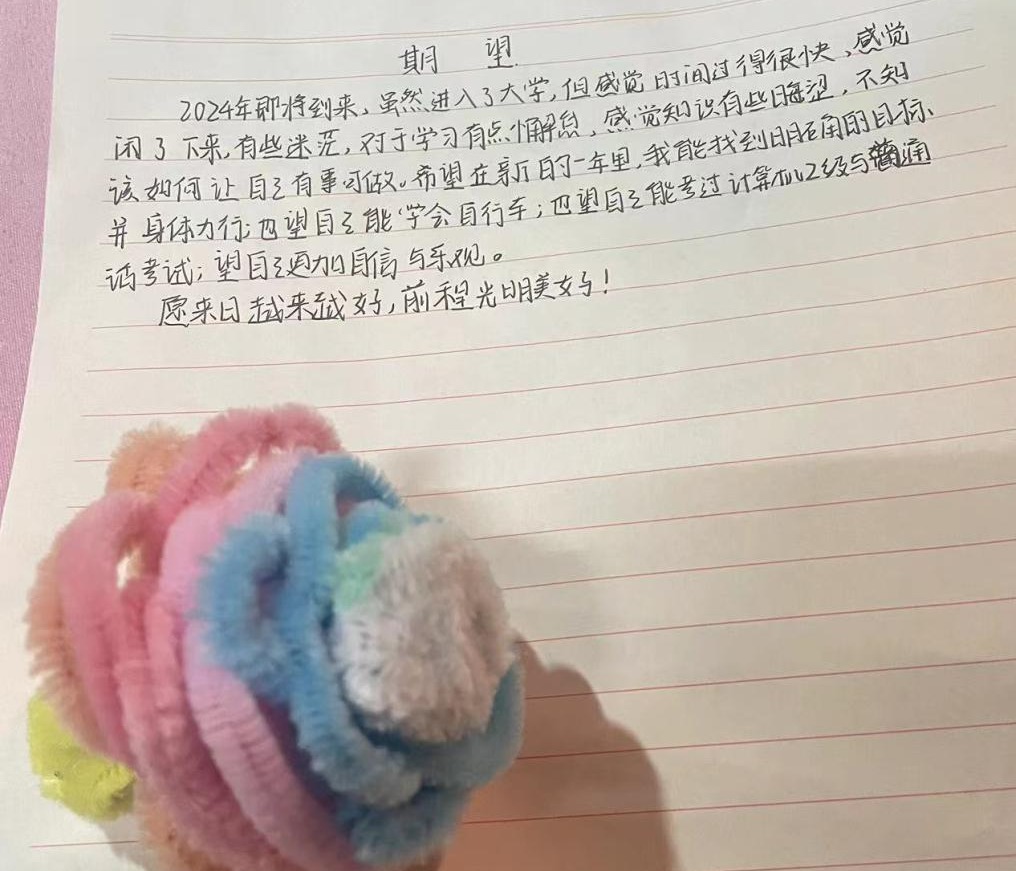 期 望
2024年即将到来,虽然进入了大学,但感觉时间过得很快、感觉
闲了下来,有些迷茫,对于学习有点懈怠,感觉知识有些晦涩,不知
该如何让自己有事可做。希望在新的一年里,我能找到明确的目标、
并身体力行;也望自己能学会自行车;也望自己能考过计算机2级与普通
话考试;望自己更加自信与乐观。
愿来日越来越好,前程光明美好!